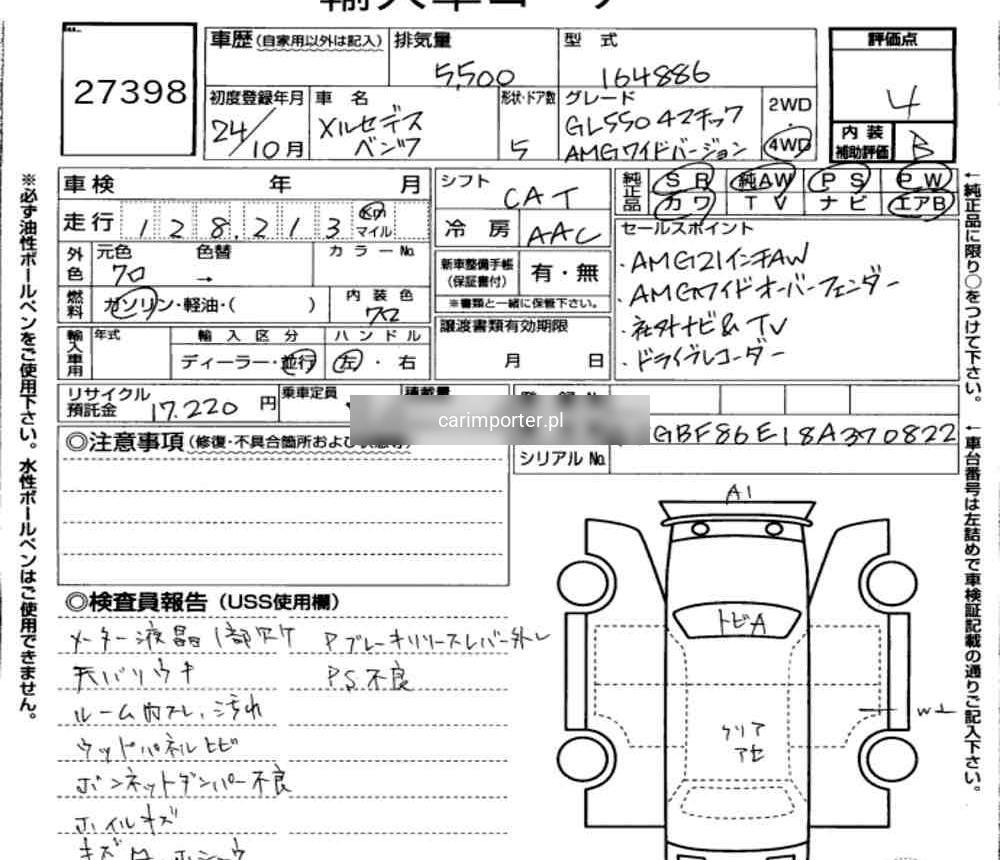 27398
車歴(自家用以外は記入)
排気量
5,500
型 式
164886
評価点
4
内装
補助評価
B
初度登録年月
24/10月
車 名
メルセデス
ベンツ
形状・ドア数
5
グレード
GL550 4マチック
AMGワイドバージョン
2WD
・
4WD
車検 年 月
走行 128,213 Km
マイル
外色
元色
クロ
色替
→
カラーNo.
燃料
ガソリン・軽油・( )
内装色
クロ
輸入車用
年式
輸入区分
ディーラー・並行
ハンドル
左・右
シフト
CAT
冷房
AAC
新車整備手帳
(保証書付)
有・無
※書類と一緒に保管下さい。
譲渡書類有効期限
月 日
純正品
SR 純AW PS PW
カワ TV ナビ エアB
セールスポイント
・AMG21インチAW
・AMGワイドオーバーフェンダー
・社外ナビ&TV
・ドライブレコーダー
リサイクル
預託金
17.220円
乗車定員
積載量
carimporter.pl
GBF86E18A370822
シリアルNo.
◎注意事項(修復・不具合箇所および
◎検査員報告(USS使用欄)
メーター液晶1部欠ケ
Pブレーキリリースレバー外レ
天バリウキ
PS不良
ルーム内スレ、汚れ
ウッドパネルヒビ
ボンネットダンパー不良
ホイルキズ
A1
トビA
クリア
アセ
※必ず油性ボールペンをご使用下さい。水性ボールペンはご使用できません。
←純正品に限り○をつけて下さい。
←車台番号は左詰めで車検証記載の通りご記入下さい。